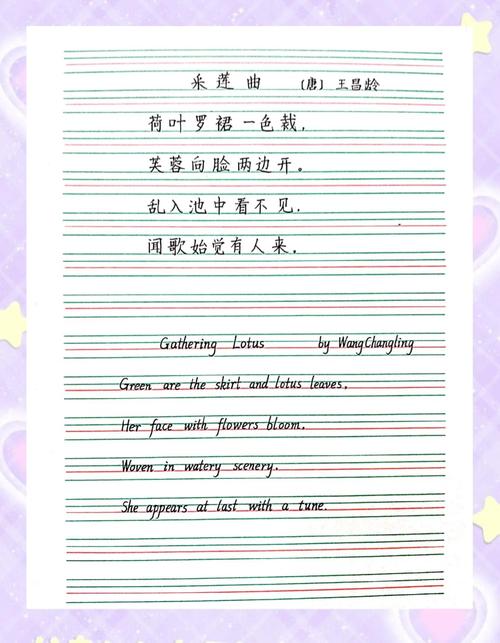 采莲曲 〔唐〕王昌龄
荷叶罗裙一色裁,
芙蓉向脸两边开。
乱入池中看不见.
闻歌始觉有人来.
Gathering Lotus by WangChangling
Green are the skirt and lotus leaves,
Her face with flowers bloom.
Woven in watery scenery.
She appears at last with a tune.